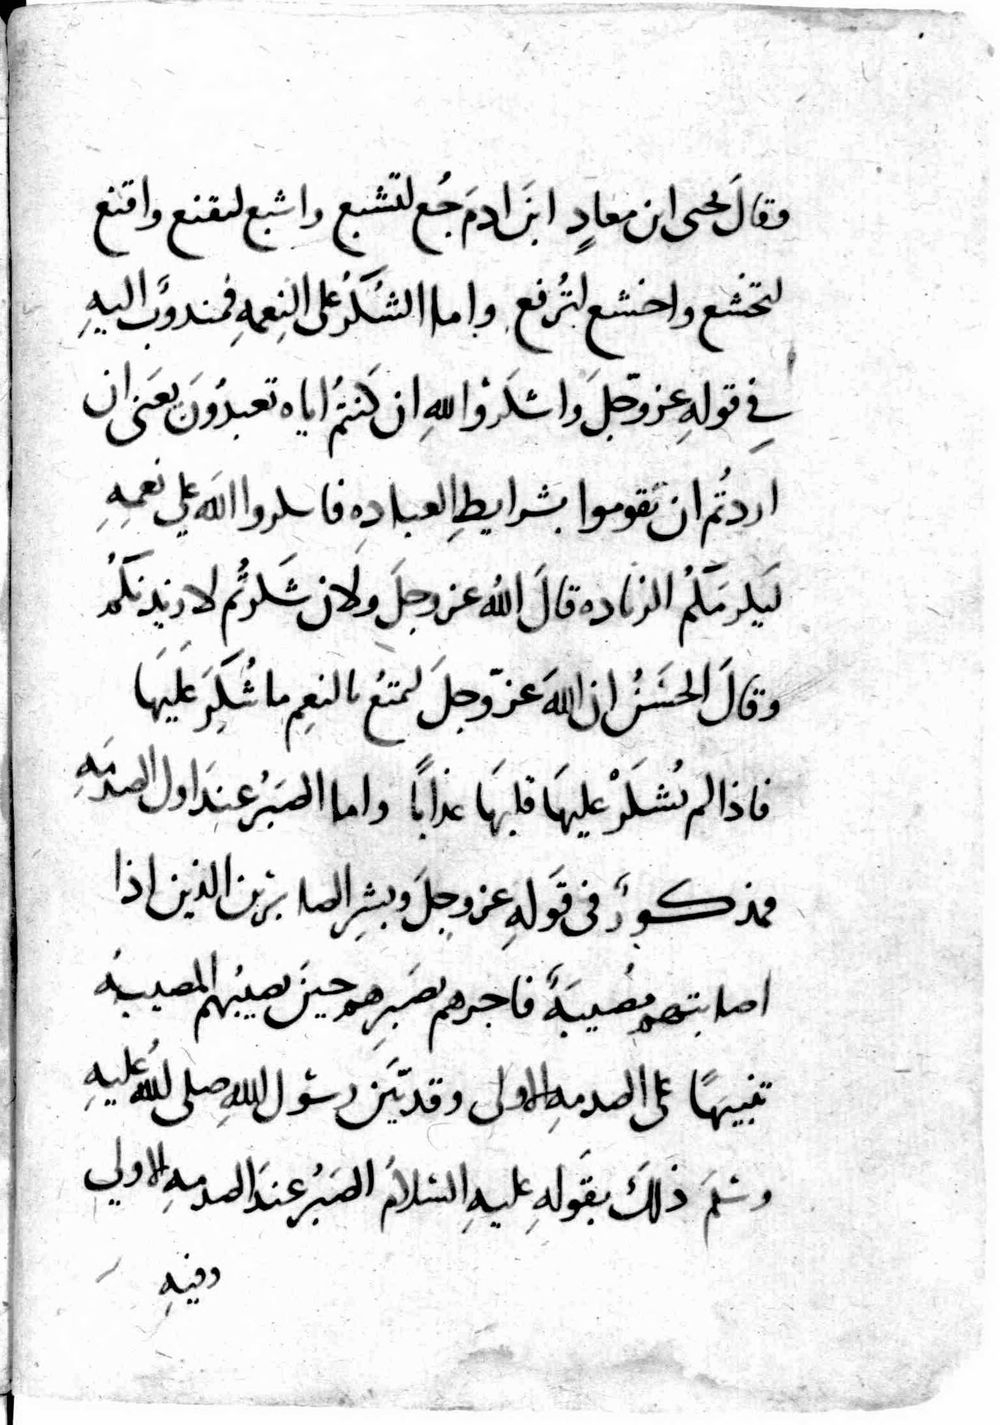 وقالَ يحيى ابن معاذٍ ابنَ ادمَ جُع لتشبع واشبع لتقنع واقنع
لتخشع واخشع لتُرفع واما الشُكرُ على النِعمهِ فمندوبٌ اليهِ
في قولهِ عز وجّلَ واشكرُوا للهِ ان كنتمُ اياه تعبدُونَ يعَنى ان
اردتُم ان تقوموا بشرايطِ العبادِه فاشكروا اللهَ علي نعمِهِ
ليَكرمَكمُ الزياده قالَ اللهُ عز وجلَ ولان شَكرتُم لازيدنكمُ
وقالَ الحسَنُ ان اللهَ عزّ وجلَ ليمتعُ بالنعِم ما شُكِرَ عَليَها
فاذا لم يُشكَرْ عليهَا قلبهَا عذاباً واما الصَبرُ عندَ اول الصدمَهِ
فمذكورٌ فى قَولهِ عز وجلَ وبشِرِ الصابرين الذين اذا
اصابتهم مُصيبَةٌ فاجرهم بصَبرِهم حينَ تصيبُهم المصيبهُ
تنبيهًا على الصدمهِ الاولى وقد بّيَن رسُول اللهِ صلى اللهُ عليهِ
وسَلمَ ذلكَ بقَولهِ عليهِ السَلامُ الصَبرُ عندَ الصدمهِ الاولي
وفيهِ